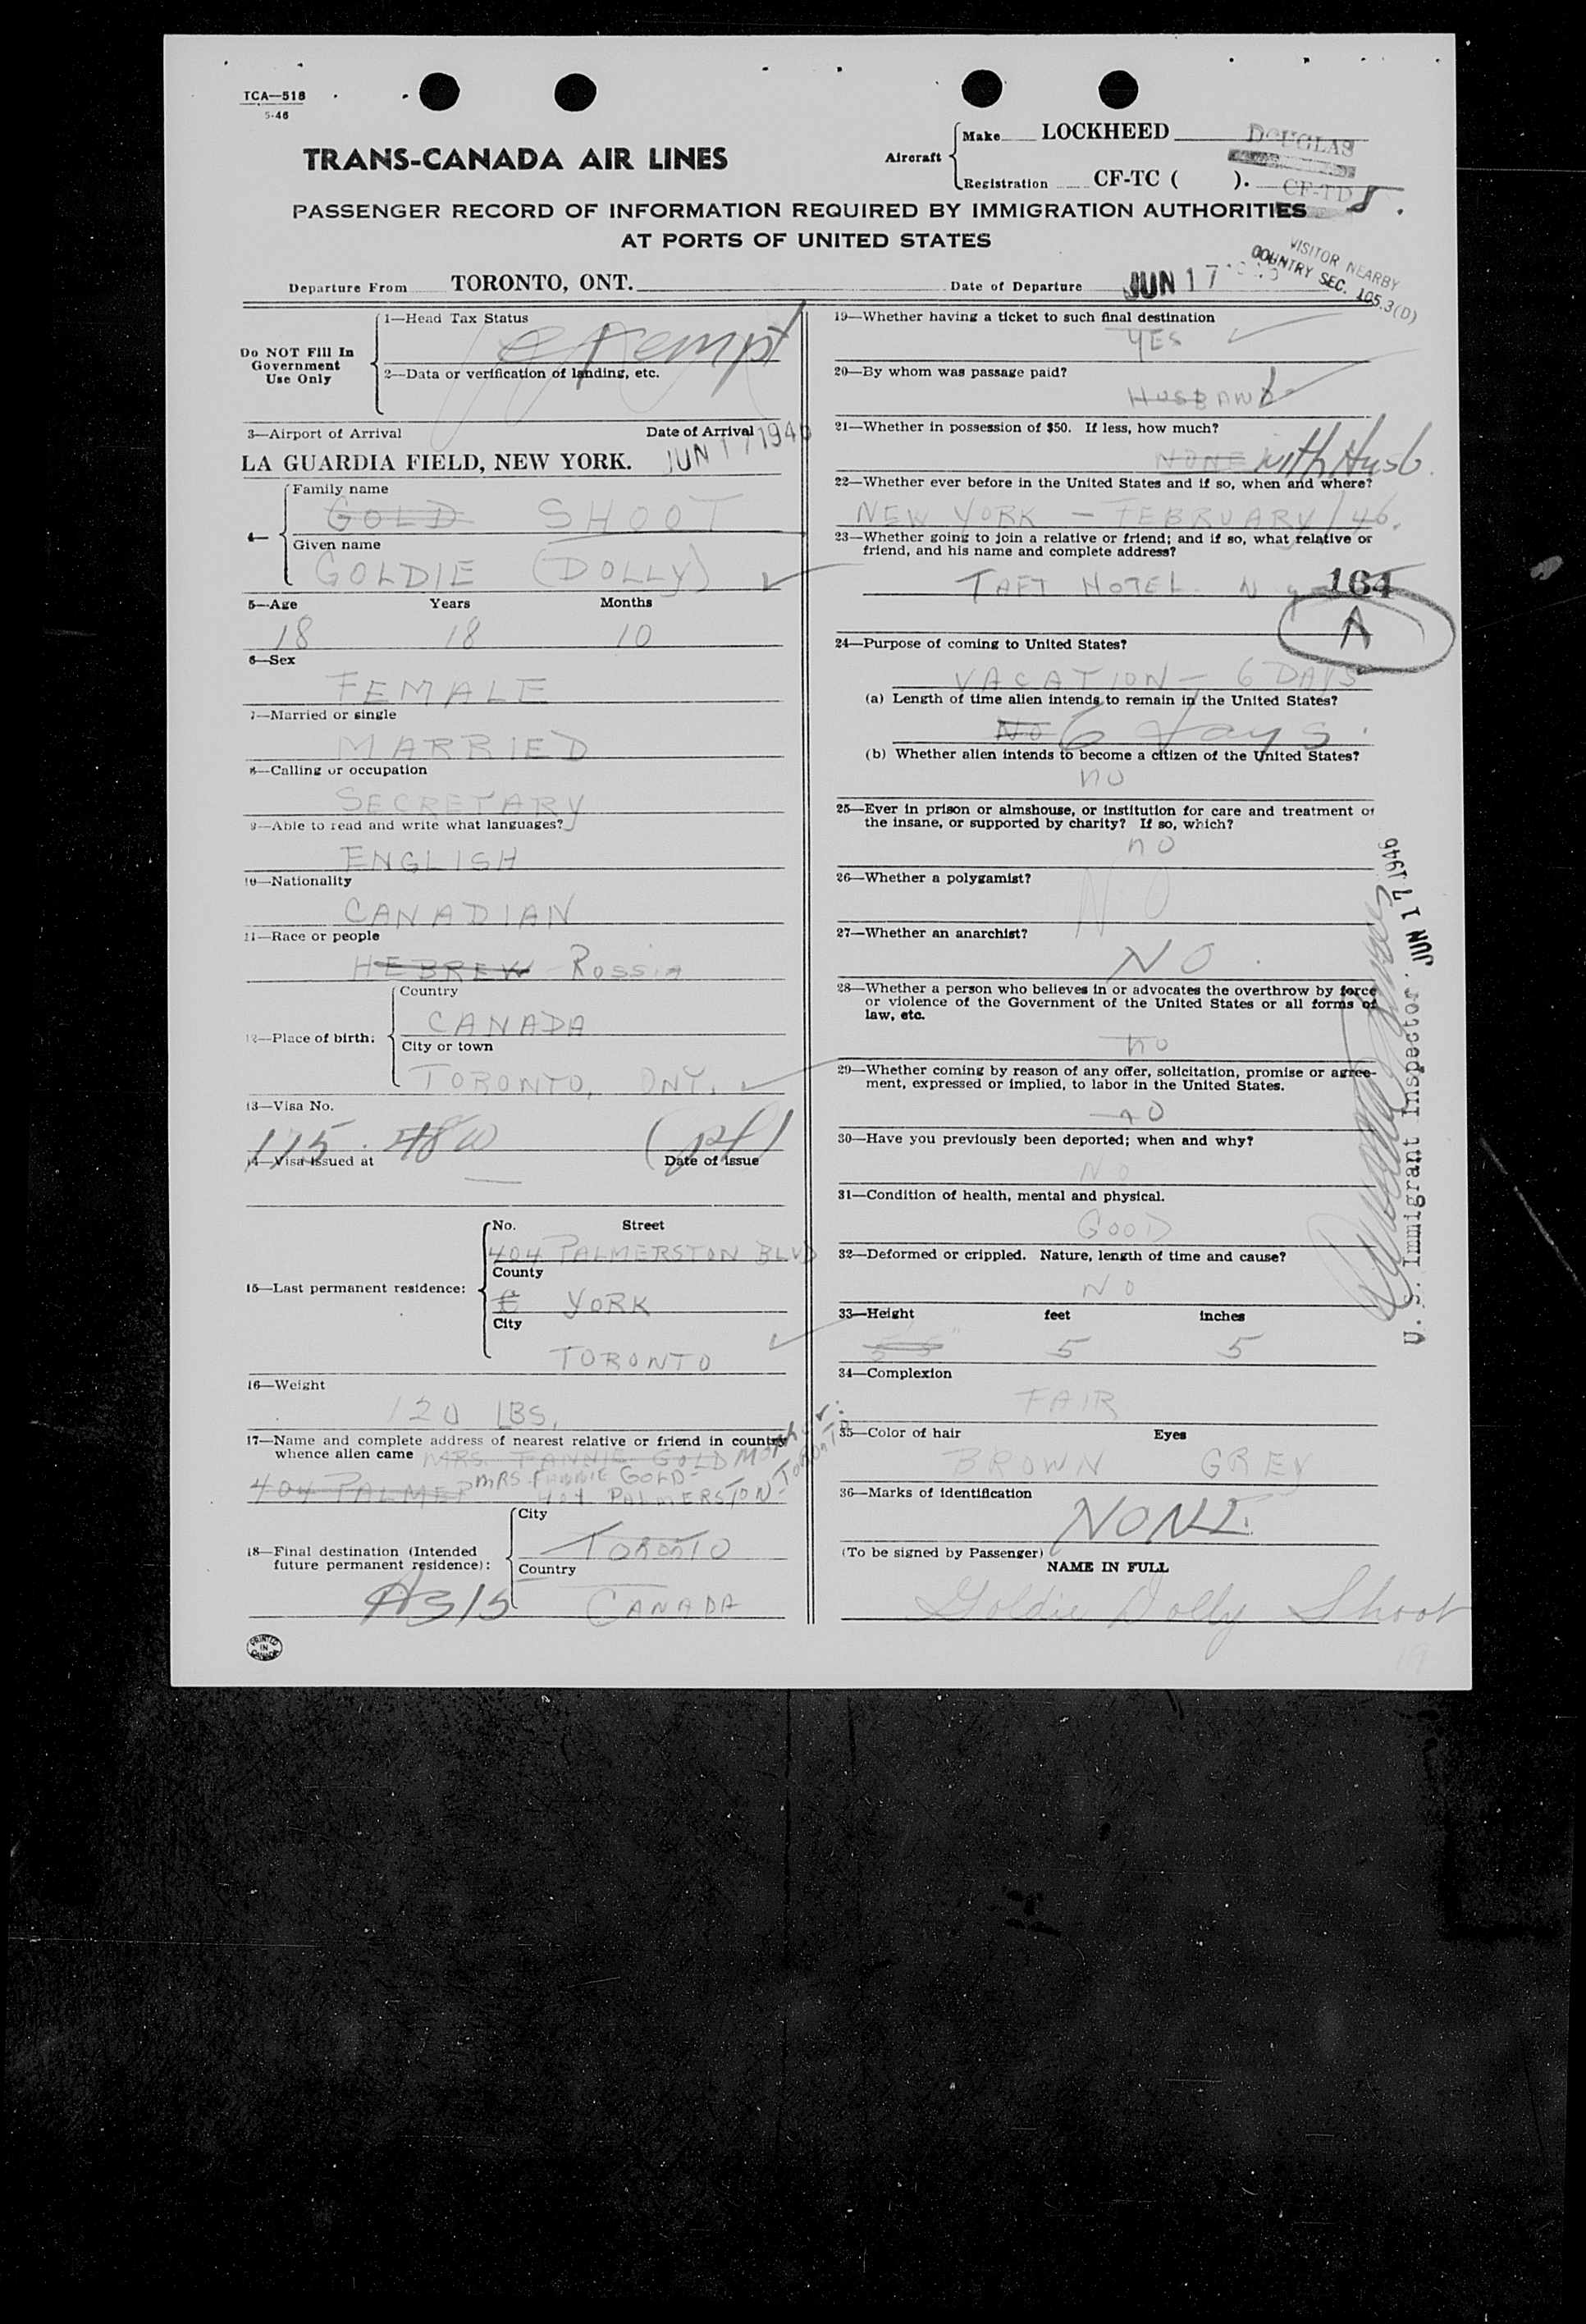 TCA—518
5-46
TRANS-CANADA AIR LINES
Aircraft
Make LOCKHEED DOUGLAS
Registration CF-TC ( ). CF-TD
PASSENGER RECORD OF INFORMATION REQUIRED BY IMMIGRATION AUTHORITIES
AT PORTS OF UNITED STATES
VISITOR NEARBY
COUNTRY SEC. 105.3(D)
Departure From TORONTO, ONT. Date of Departure JUN 17
Do NOT Fill In
Government
Use Only
1—Head Tax Status
exempt
2—Data or verification of landing, etc.
3—Airport of Arrival Date of Arrival
LA GUARDIA FIELD, NEW YORK. JUN 17 1946
4—
Family name
GOLD SHOOT
Given name
GOLDIE (DOLLY)
5—Age Years Months
18 18 10
6—Sex
FEMALE
7—Married or single
MARRIED
8—Calling or occupation
SECRETARY
9—Able to read and write what languages?
ENGLISH
10—Nationality
CANADIAN
11—Race or people
HEBREW Rossia
12—Place of birth:
Country
CANADA
City or town
TORONTO, ONT.
13—Visa No.
175.
14—Visa issued at Date of issue
15—Last permanent residence:
No. Street
404 PALMERSTON BLVD
County
YORK
City
TORONTO
16—Weight
120 LBS.
17—Name and complete address of nearest relative or friend in country
whence alien came MRS. FANNIE GOLD Mother:
404 PALMER MRS. FANNIE GOLD-
404 PALMERSTON-TORONTO
18—Final destination (Intended
future permanent residence):
City
TORONTO
Country
CANADA
PRINTED
IN
CANADA
19—Whether having a ticket to such final destination
YES
20—By whom was passage paid?
HUSBAND
21—Whether in possession of $50. If less, how much?
NONE with Husb.
22—Whether ever before in the United States and if so, when and where?
NEW YORK — FEBRUARY/46.
23—Whether going to join a relative or friend; and if so, what relative or
friend, and his name and complete address?
TAFT HOTEL. N Y 164
A
24—Purpose of coming to United States?
VACATION — 6 DAYS
(a) Length of time alien intends to remain in the United States?
NO 6 days.
(b) Whether alien intends to become a citizen of the United States?
no
25—Ever in prison or almshouse, or institution for care and treatment of
the insane, or supported by charity? If so, which?
no
26—Whether a polygamist?
NO
27—Whether an anarchist?
NO.
28—Whether a person who believes in or advocates the overthrow by force
or violence of the Government of the United States or all forms of
law, etc.
no
29—Whether coming by reason of any offer, solicitation, promise or agree-
ment, expressed or implied, to labor in the United States.
no
30—Have you previously been deported; when and why?
NO
31—Condition of health, mental and physical.
GOOD
32—Deformed or crippled. Nature, length of time and cause?
NO
33—Height feet inches
5'5" 5 5
34—Complexion
FAIR
35—Color of hair Eyes
BROWN GREY
36—Marks of identification
NONE.
(To be signed by Passenger)
NAME IN FULL
Goldie Dolly Shoot
U. S. Immigrant Inspector. JUN 17 1946